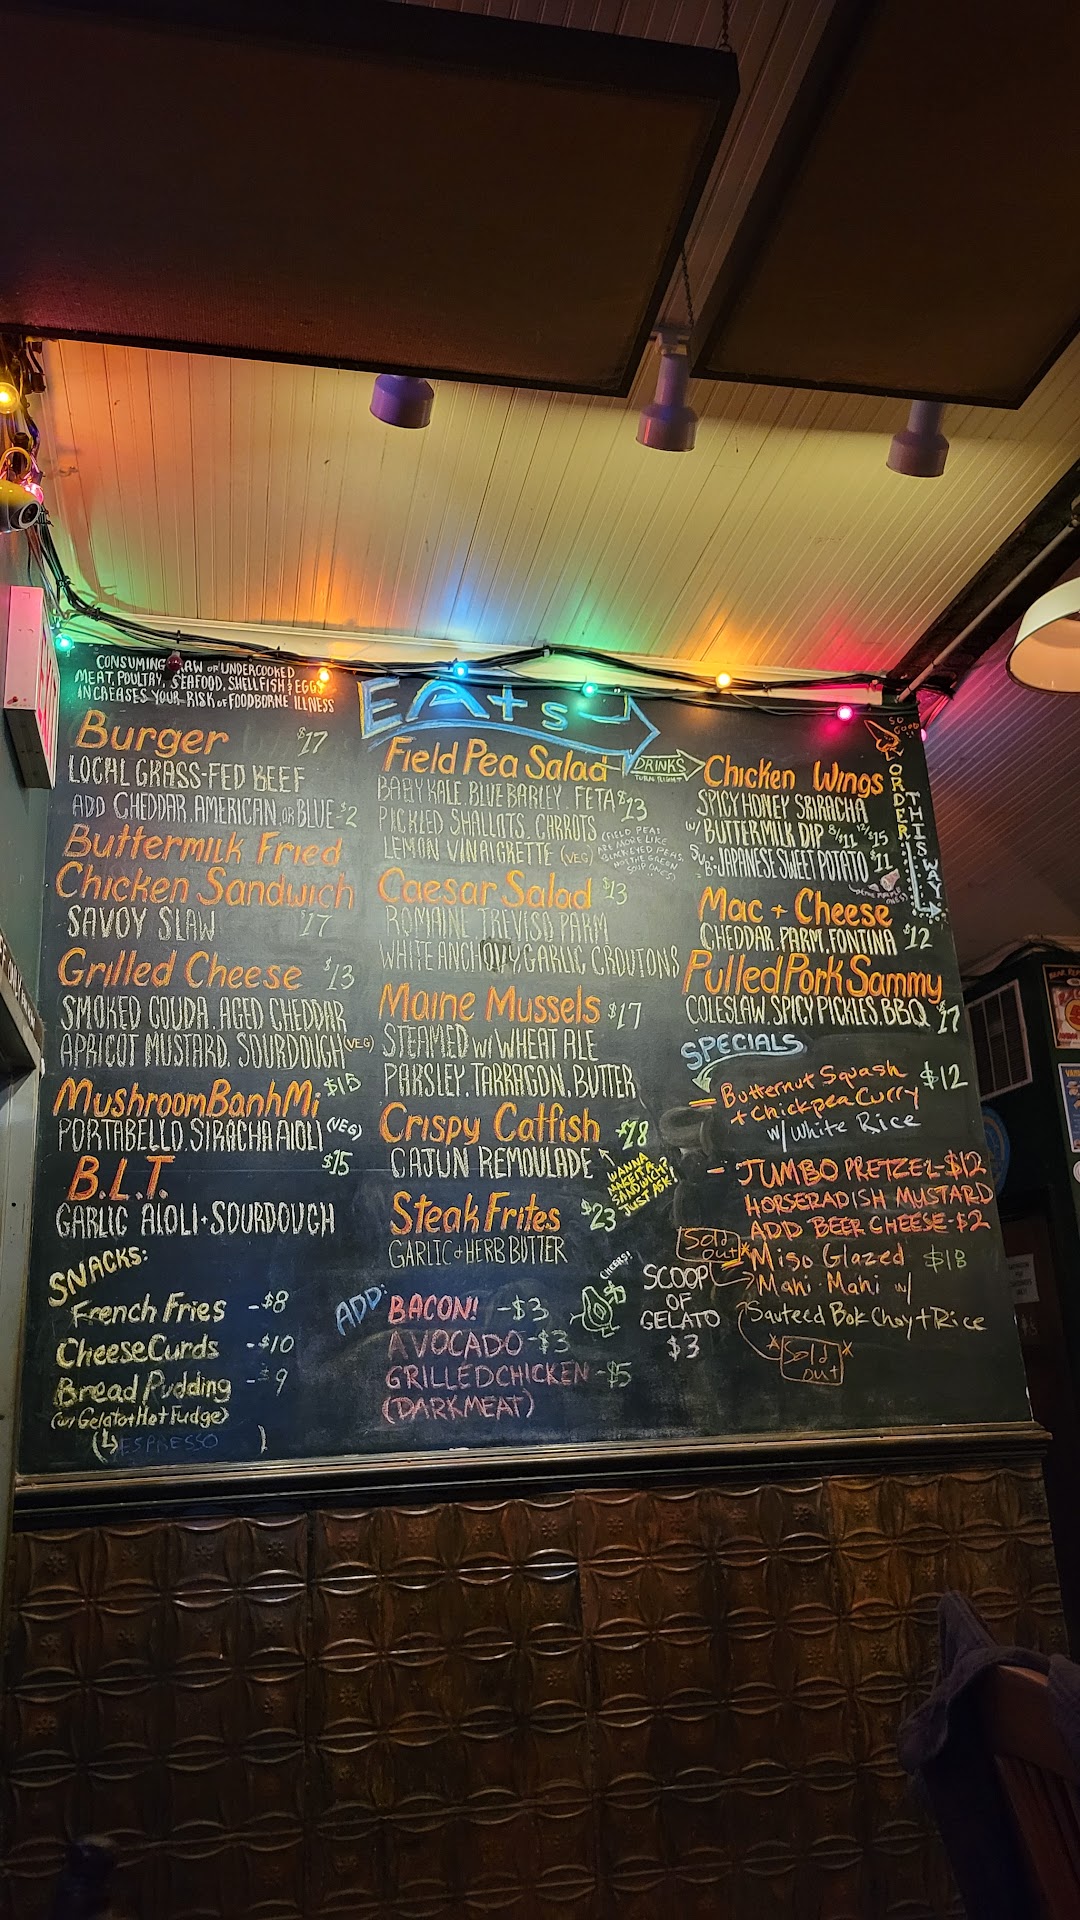 CONSUMING RAW OR UNDERCOOKED
MEAT, POULTRY, SEAFOOD, SHELLFISH & EGGS
INCREASES YOUR RISK OF FOODBORNE ILLNESS
EAts
Burger $17
LOCAL GRASS-FED BEEF
ADD CHEDDAR, AMERICAN, OR BLUE $2
Buttermilk Fried
Chicken Sandwich
SAVOY SLAW $17
Grilled Cheese $13
SMOKED GOUDA, AGED CHEDDAR
APRICOT MUSTARD, SOURDOUGH (VEG)
Mushroom Banh Mi $15
PORTABELLO, SIRACHA AIOLI (VEG)
B.L.T. $15
GARLIC AIOLI + SOURDOUGH
SNACKS:
French Fries - $8
Cheese Curds - $10
Bread Pudding - $9
(w/ Gelato + Hot Fudge)
(↳ ESPRESSO )
Field Pea Salad
BABY KALE, BLUE BARLEY, FETA $13
PICKLED SHALLOTS, CARROTS
LEMON VINAIGRETTE (VEG)
(FIELD PEAS
ARE MORE LIKE
BLACK EYED PEAS,
NOT THE GREEN
SOUP ONES)
DRINKS
TURN RIGHT
Caesar Salad $13
ROMAINE TREVISO PARM
WHITE ANCHOVY, GARLIC CROUTONS
Maine Mussels $17
STEAMED w/ WHEAT ALE
PARSLEY, TARRAGON, BUTTER
Crispy Catfish $18
CAJUN REMOULADE
WANNA
MAKE IT A
SANDWICH?
JUST ASK!
Steak Frites $23
GARLIC & HERB BUTTER
ADD:
BACON! - $3
AVOCADO - $3
GRILLED CHICKEN - $5
(DARK MEAT)
CHEERS!
SCOOP
OF
GELATO
$3
Chicken Wings
SPICY HONEY SRIRACHA
w/ BUTTERMILK DIP 8/11 12/$15
SUB: JAPANESE SWEET POTATO $11
Mac + Cheese
CHEDDAR, PARM, FONTINA $12
Pulled Pork Sammy
COLESLAW, SPICY PICKLES, BBQ $17
SO
GOOD
ORDER
THIS WAY
SPECIALS
- Butternut Squash $12
+ Chickpea Curry
w/ White Rice
- JUMBO PRETZEL - $12
HORSERADISH MUSTARD
ADD BEER CHEESE - $2
Sold
out
Miso Glazed $18
Mahi Mahi w/
Sauteed Bok Choy + Rice
Sold
out